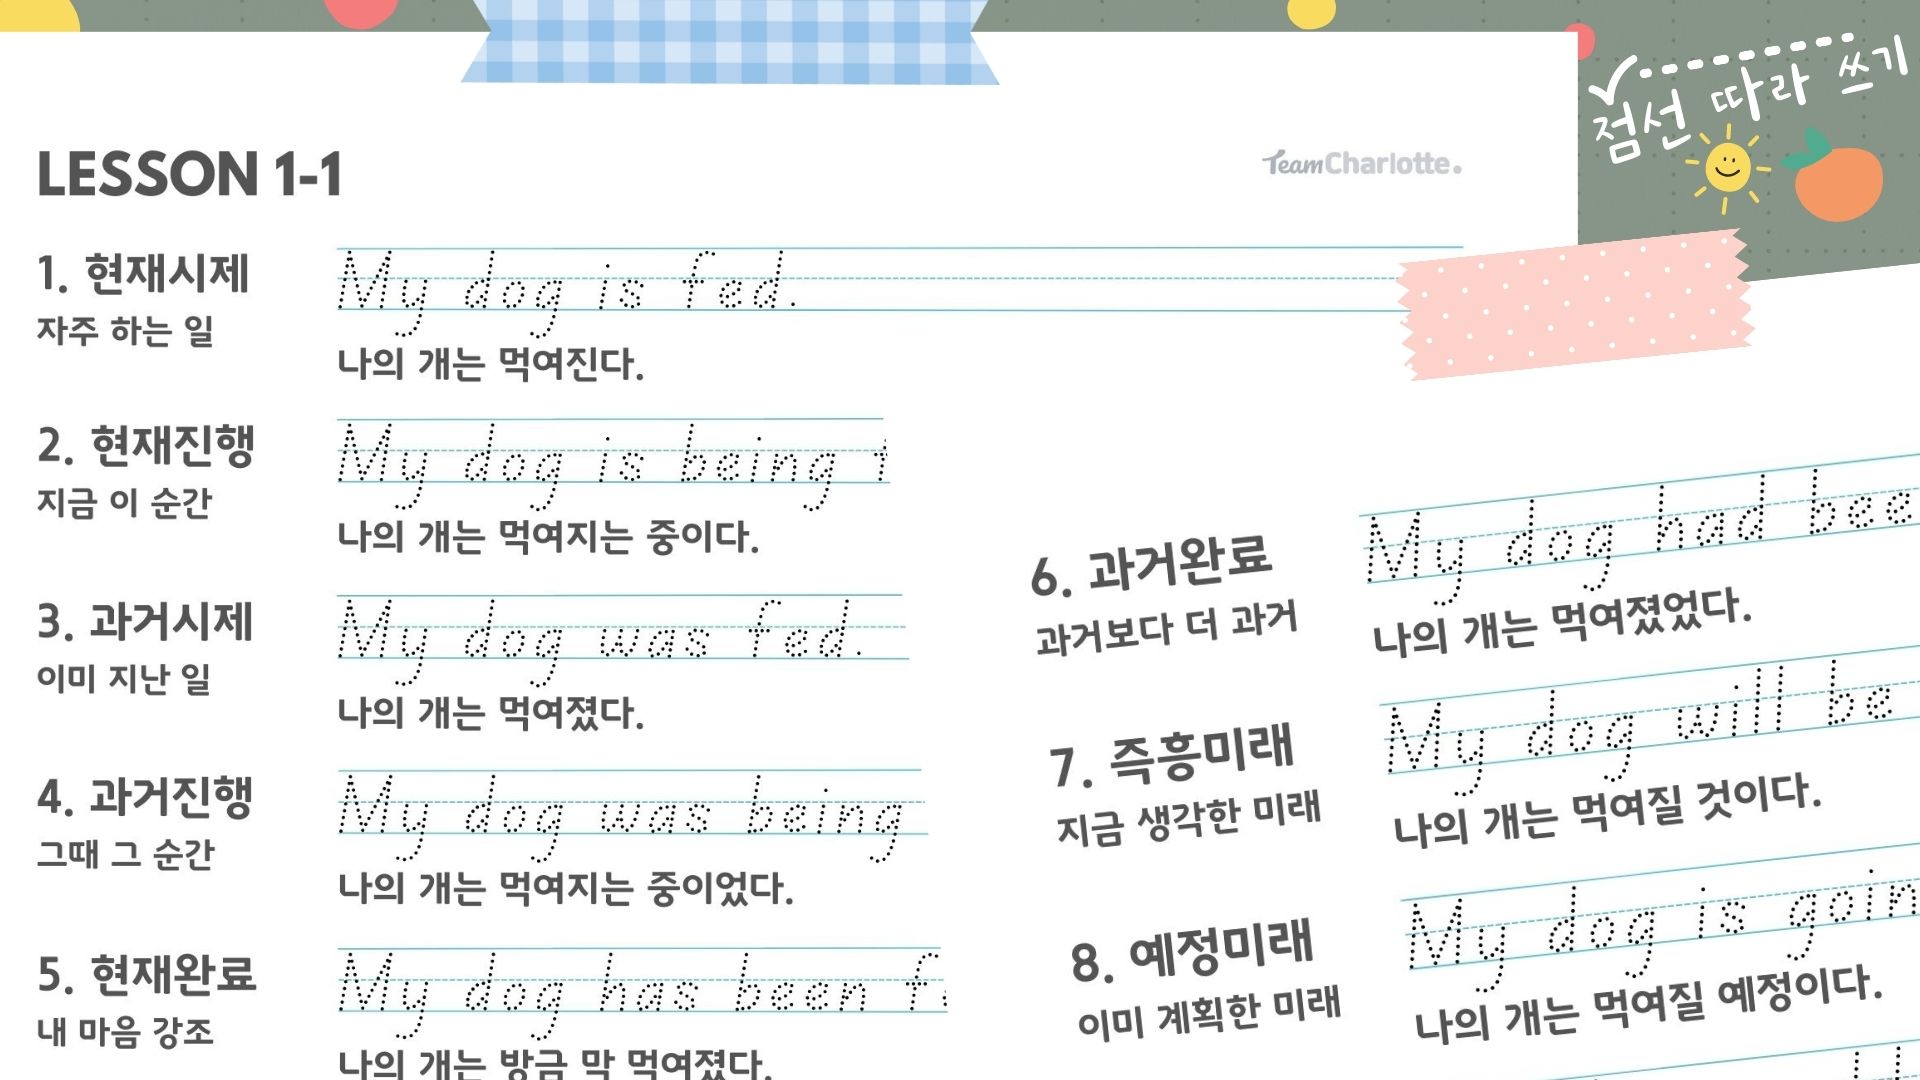 점선 따라 쓰기
LESSON 1-1
TeamCharlotte.
1. 현재시제
자주 하는 일
My dog is fed.
나의 개는 먹여진다.
2. 현재진행
지금 이 순간
My dog is being
나의 개는 먹여지는 중이다.
3. 과거시제
이미 지난 일
My dog was fed.
나의 개는 먹여졌다.
4. 과거진행
그때 그 순간
My dog was being
나의 개는 먹여지는 중이었다.
5. 현재완료
내 마음 강조
My dog has been f
나의 개는 방금 막 먹여졌다.
6. 과거완료
과거보다 더 과거
My dog had bee
나의 개는 먹여졌었다.
7. 즉흥미래
지금 생각한 미래
My dog will be
나의 개는 먹여질 것이다.
8. 예정미래
이미 계획한 미래
My dog is goin
나의 개는 먹여질 예정이다.